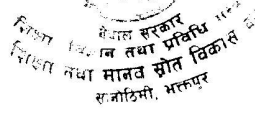 नेपाल सरकार
शिक्षा विज्ञान तथा प्रविधि
शिक्षा तथा मानव स्रोत विकास
सानोठिमी, भक्तपुर